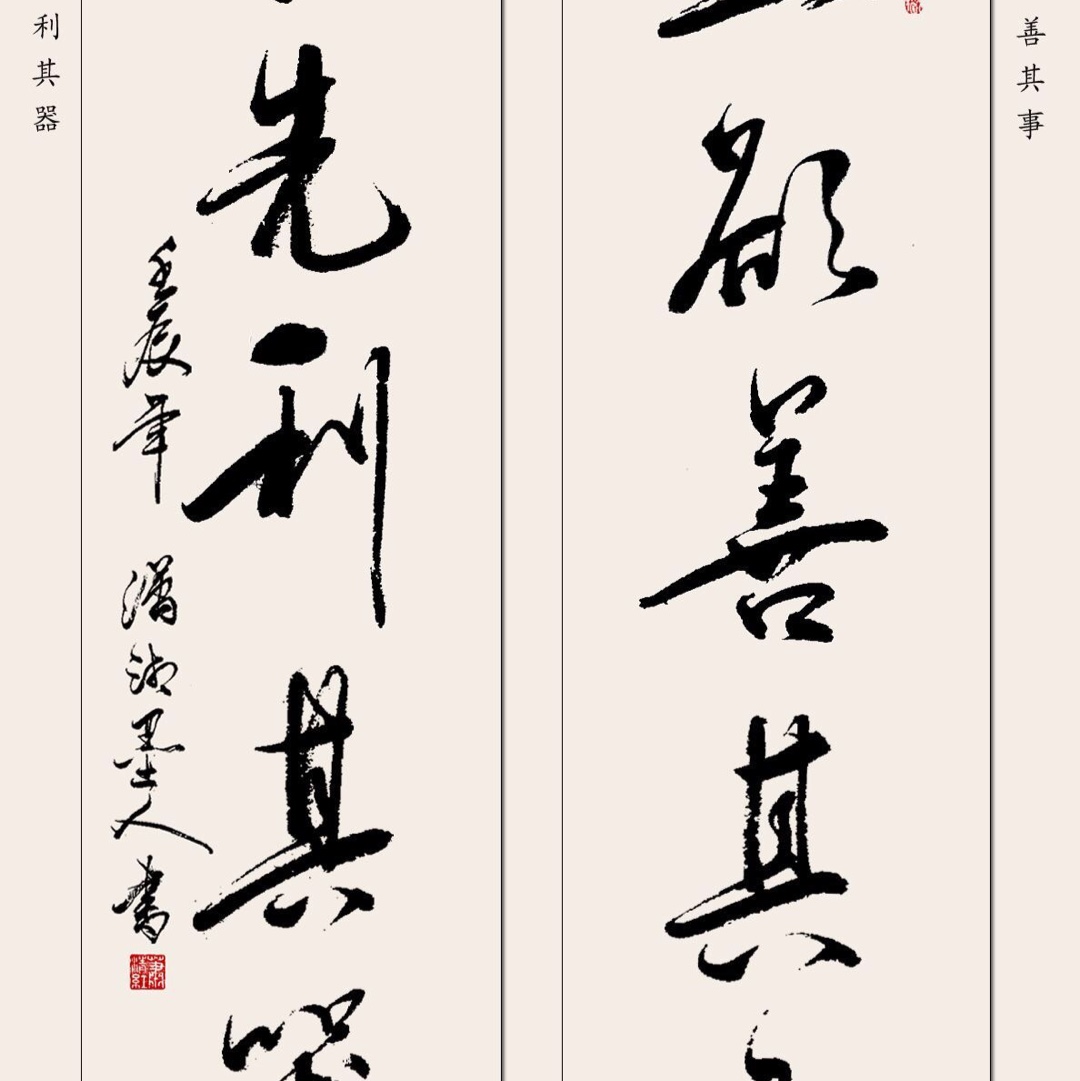 善其事
欲善其
先利其器
壬辰年 潇湘墨人书
利其器